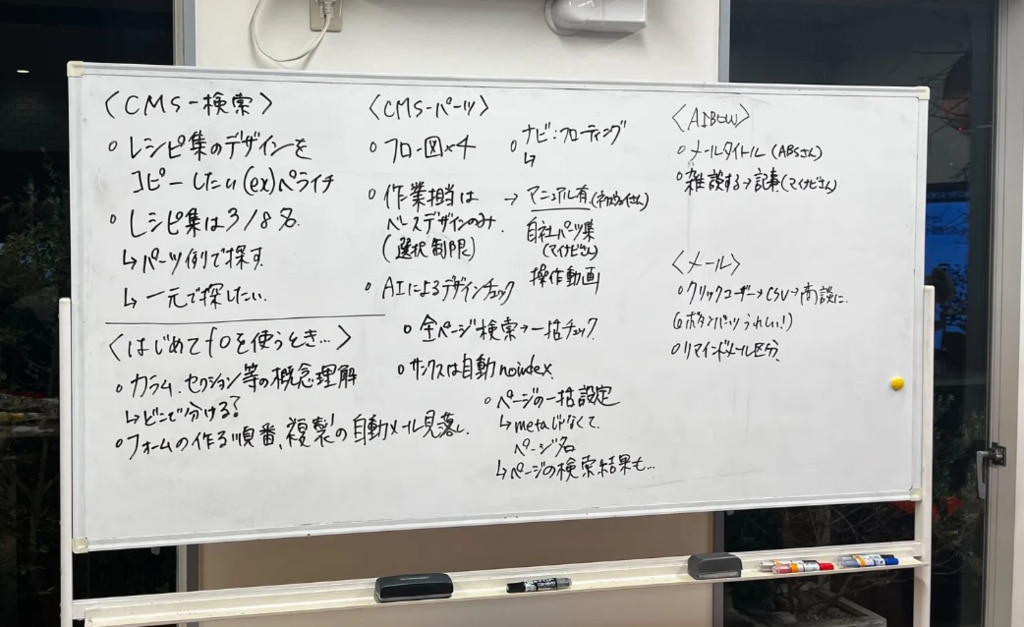 〈CMS-検索〉
○ レシピ集のデザインを
コピーしたい(ex)ペライチ
○ レシピ集は3/8%
↳パーツ例で探す.
↳一元で探したい.
〈はじめてfOを使うとき…〉
○ カラム、セクション等の概念理解
↳どこで分ける?
○フォームの作る順番、複製の自動メール見落し.
〈CMS-パーツ〉
○ フロー図×4
○ 作業担当は
ベースデザインのみ.
(選択制限)
○ AIによるデザインチェック
○ 全ページ検索→一括チェック
○ サンクスは自動noindex.
○ ページの一括設定
↳metaじゃなくて.
ページ名
↳ページの検索結果も…
○ ナビ:フローティング
↳
→ マニュアル有.
自社パーツ集
(マイナビさん)
操作動画
〈AIBOW〉
○ メールタイトル (ABSさん)
○ 雑談する→記事(マイナビさん)
〈メール〉
○クリックユーザー→CSV→商談に.
(○ボタンパーツうれしい!)
○リマインドメール区分.